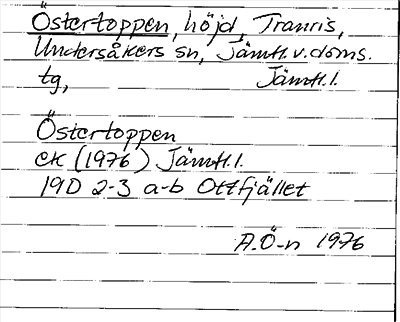 Östertoppen, höjd, Tranris,
Undersåkers sn, Jämtl.v.doms.
tg, Jämtl.l.
Östertoppen
ek (1976) Jämtl.l.
19D 2-3 a-b Ottfjället
A.Ö-n 1976